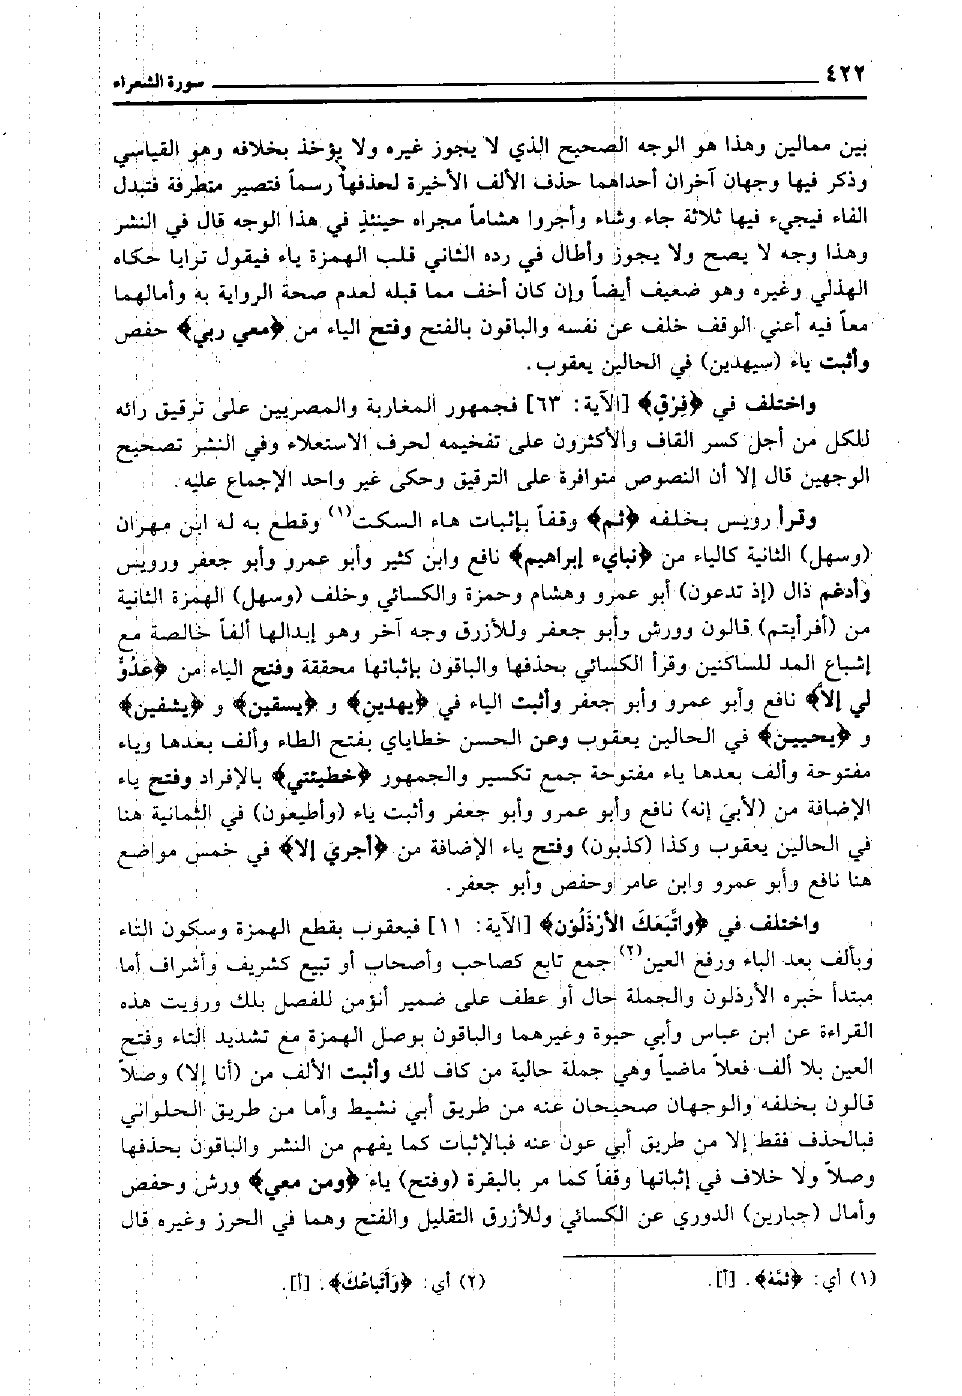 ٤٢٢ سورة الشعراء
بين ممالين وهذا هو الوجه الصحيح الذي لا يجوز غيره ولا يؤخذ بخلافه وهو القياسي
وذكر فيها وجهان آخران أحداهما حذف الألف الأخيرة لحذفها رسماً فتصير متطرفة فتبدل
الفاء فيجيء فيها ثلاثة جاء وشاء وأجروا هشاماً مجراه حينئذٍ في هذا الوجه قال في النشر
وهذا وجه لا يصح ولا يجوز وأطال في رده الثاني قلب الهمزة ياء فيقول ترايا حكاه
الهذلي وغيره وهو ضعيف أيضاً وإن كان أخف مما قبله لعدم صحة الرواية به وأمالهما
معاً فيه أعني الوقف خلف عن نفسه والباقون بالفتح وفتح الياء من ﴿معي ربي﴾ حفص
وأثبت ياء (سيهدين) في الحالين يعقوب.
واختلف في ﴿فِرْقٍ﴾ [الآية: ٦٣] فجمهور المغاربة والمصريين على ترقيق رائه
للكل من أجل كسر القاف والأكثرون على تفخيمه لحرف الاستعلاء وفي النشر تصحيح
الوجهين قال إلا أن النصوص متوافرة على الترقيق وحكى غير واحد الإجماع عليه.
وقرأ رويس بخلفه ﴿ثم﴾ وقفاً بإثبات هاء السكت(١) وقطع به له ابن مهران
(وسهل) الثانية كالياء من ﴿نباىء إبراهيم﴾ نافع وابن كثير وأبو عمرو وأبو جعفر ورويس
وأدغم ذال (إذ تدعون) أبو عمرو وهشام وحمزة والكسائي وخلف (وسهل) الهمزة الثانية
من (أفرأيتم) قالون وورش وأبو جعفر وللأزرق وجه آخر وهو إبدالها ألفاً خالصة مع
إشباع المد للساكنين وقرأ الكسائي بحذفها والباقون بإثباتها محققة وفتح الياء من ﴿عَدُوٌّ
لي إلاّ﴾ نافع وأبو عمرو وأبو جعفر وأثبت الياء في ﴿يهدين﴾ و ﴿يسقين﴾ و ﴿يشفين﴾
و ﴿يحيين﴾ في الحالين يعقوب وعن الحسن خطاياي بفتح الطاء وألف بعدها وياء
مفتوحة وألف بعدها ياء مفتوحة جمع تكسير والجمهور ﴿خطيئتي﴾ بالإفراد وفتح ياء
الإضافة من (لأبيَ إنه) نافع وأبو عمرو وأبو جعفر وأثبت ياء (وأطيعون) في الثمانية هنا
في الحالين يعقوب وكذا (كذبون) وفتح ياء الإضافة من ﴿أجري إلا﴾ في خمس مواضع
هنا نافع وأبو عمرو وابن عامر وحفص وأبو جعفر.
واختلف في ﴿واتَّبَعَكَ الأرْذَلُوْنَ﴾ [الآية: ١١] فيعقوب بقطع الهمزة وسكون التاء
وبألف بعد الباء ورفع العين(٢) جمع تابع كصاحب وأصحاب أو تبيع كشريف وأشراف أما
مبتدأ خبره الأرذلون والجملة حال أو عطف على ضمير أنؤمن للفصل بلك ورويت هذه
القراءة عن ابن عباس وأبي حيوة وغيرهما والباقون بوصل الهمزة مع تشديد التاء وفتح
العين بلا ألف فعلاً ماضياً وهي جملة حالية من كاف لك وأثبت الألف من (أنا إلا) وصلاً
قالون بخلفه والوجهان صحيحان عنه من طريق أبي نشيط وأما من طريق الحلواني
فبالحذف فقط إلا من طريق أبي عون عنه فبالإثبات كما يفهم من النشر والباقون بحذفها
وصلاً ولا خلاف في إثباتها وقفاً كما مر بالبقرة (وفتح) ياء ﴿ومن معي﴾ ورش وحفص
وأمال (جبارين) الدوري عن الكسائي وللأزرق التقليل والفتح وهما في الحرز وغيره قال
(١) أي: ﴿ثمَّهْ﴾. [أ]. (٢) أي: ﴿وَأَتْبَاعُكَ﴾. [أ].